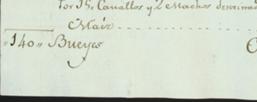 por 15. Cavallos y 2 Machos
Maiz
140 Bueyes